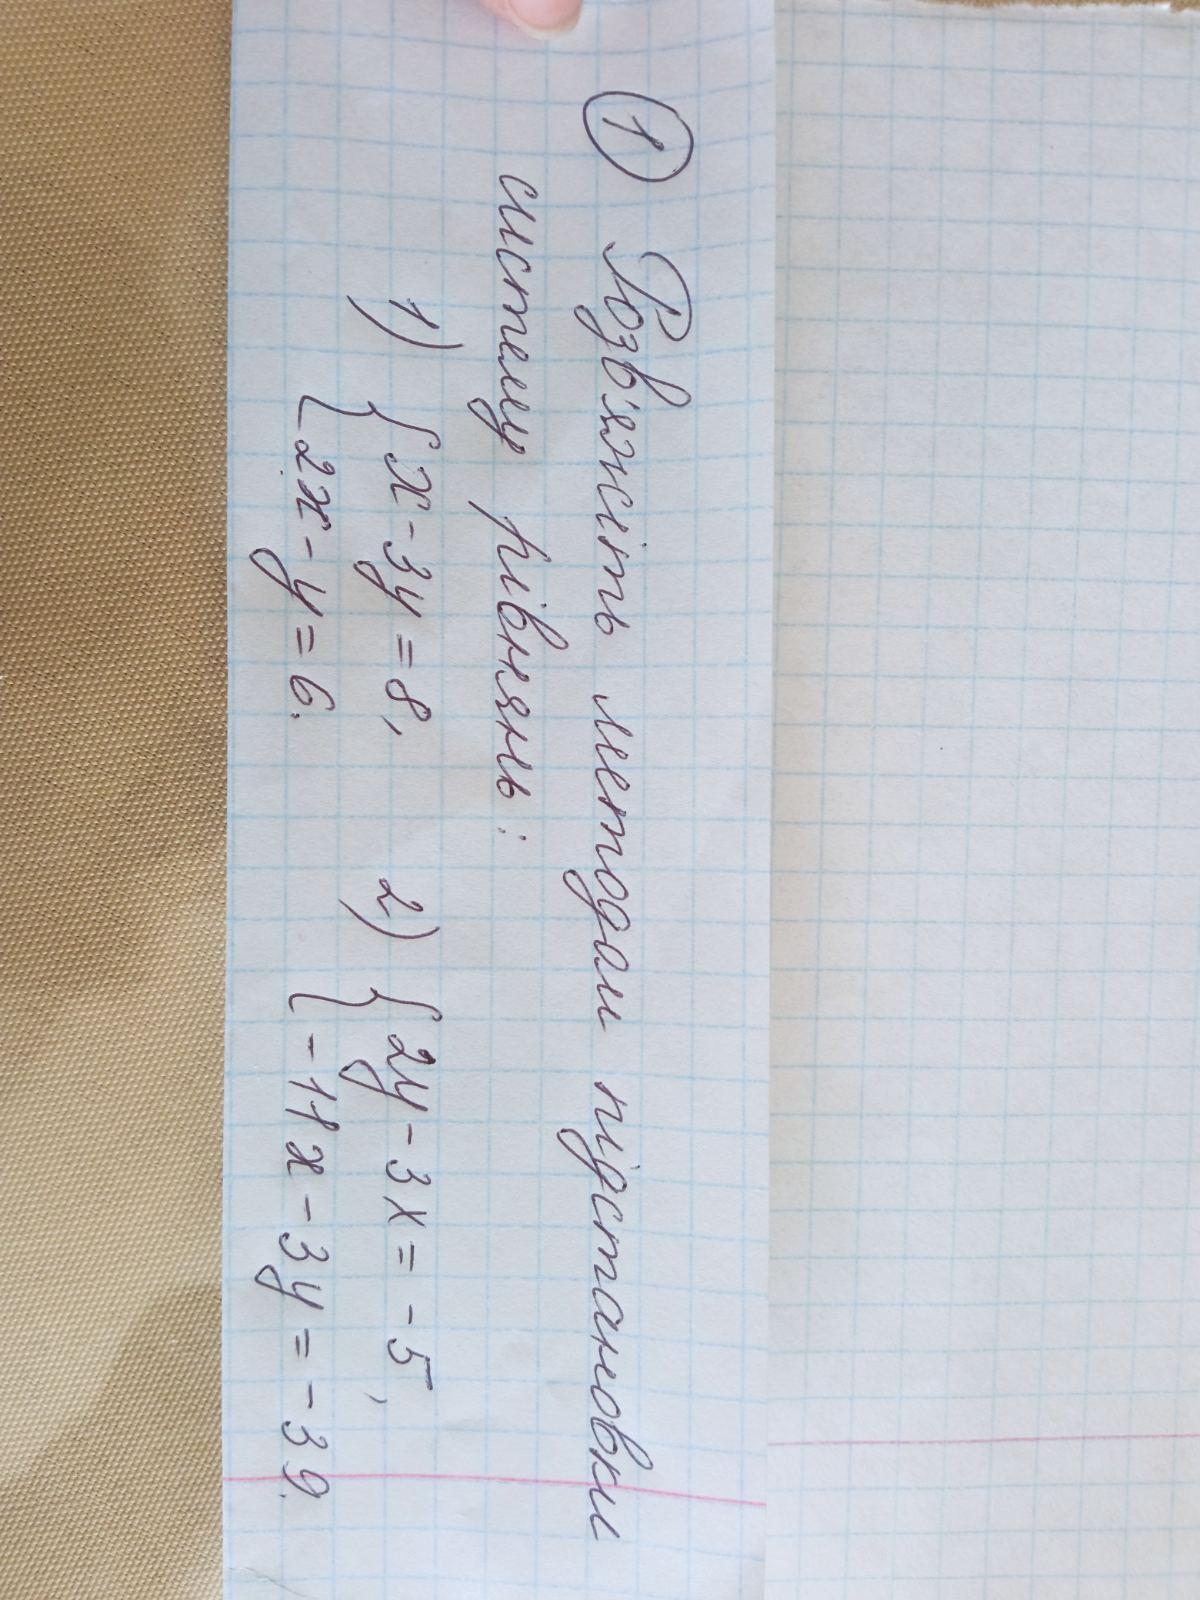 ① Розв'яжіть методом підстановки
систему рівнянь:
1) { x - 3y = 8, 2) { 2y - 3x = -5,
2x - y = 6. -11x - 3y = -39.